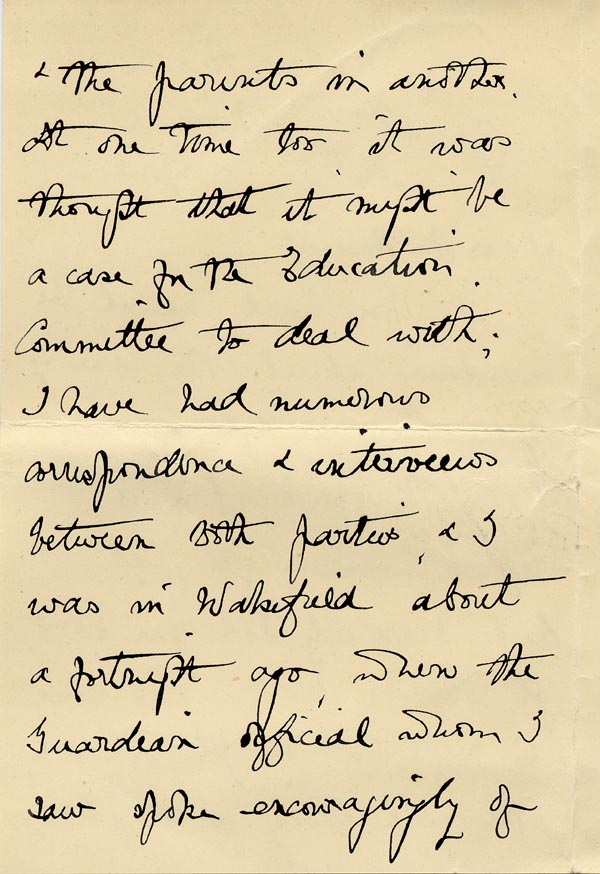 & the parents in another.
At one time too it was
thought that it might be
a case for the Education
Committee to deal with;
I have had numerous
correspondence & interviews
between both parties, & I
was in Wakefield about
a fortnight ago, when the
Guardian official whom I
saw spoke encouragingly of